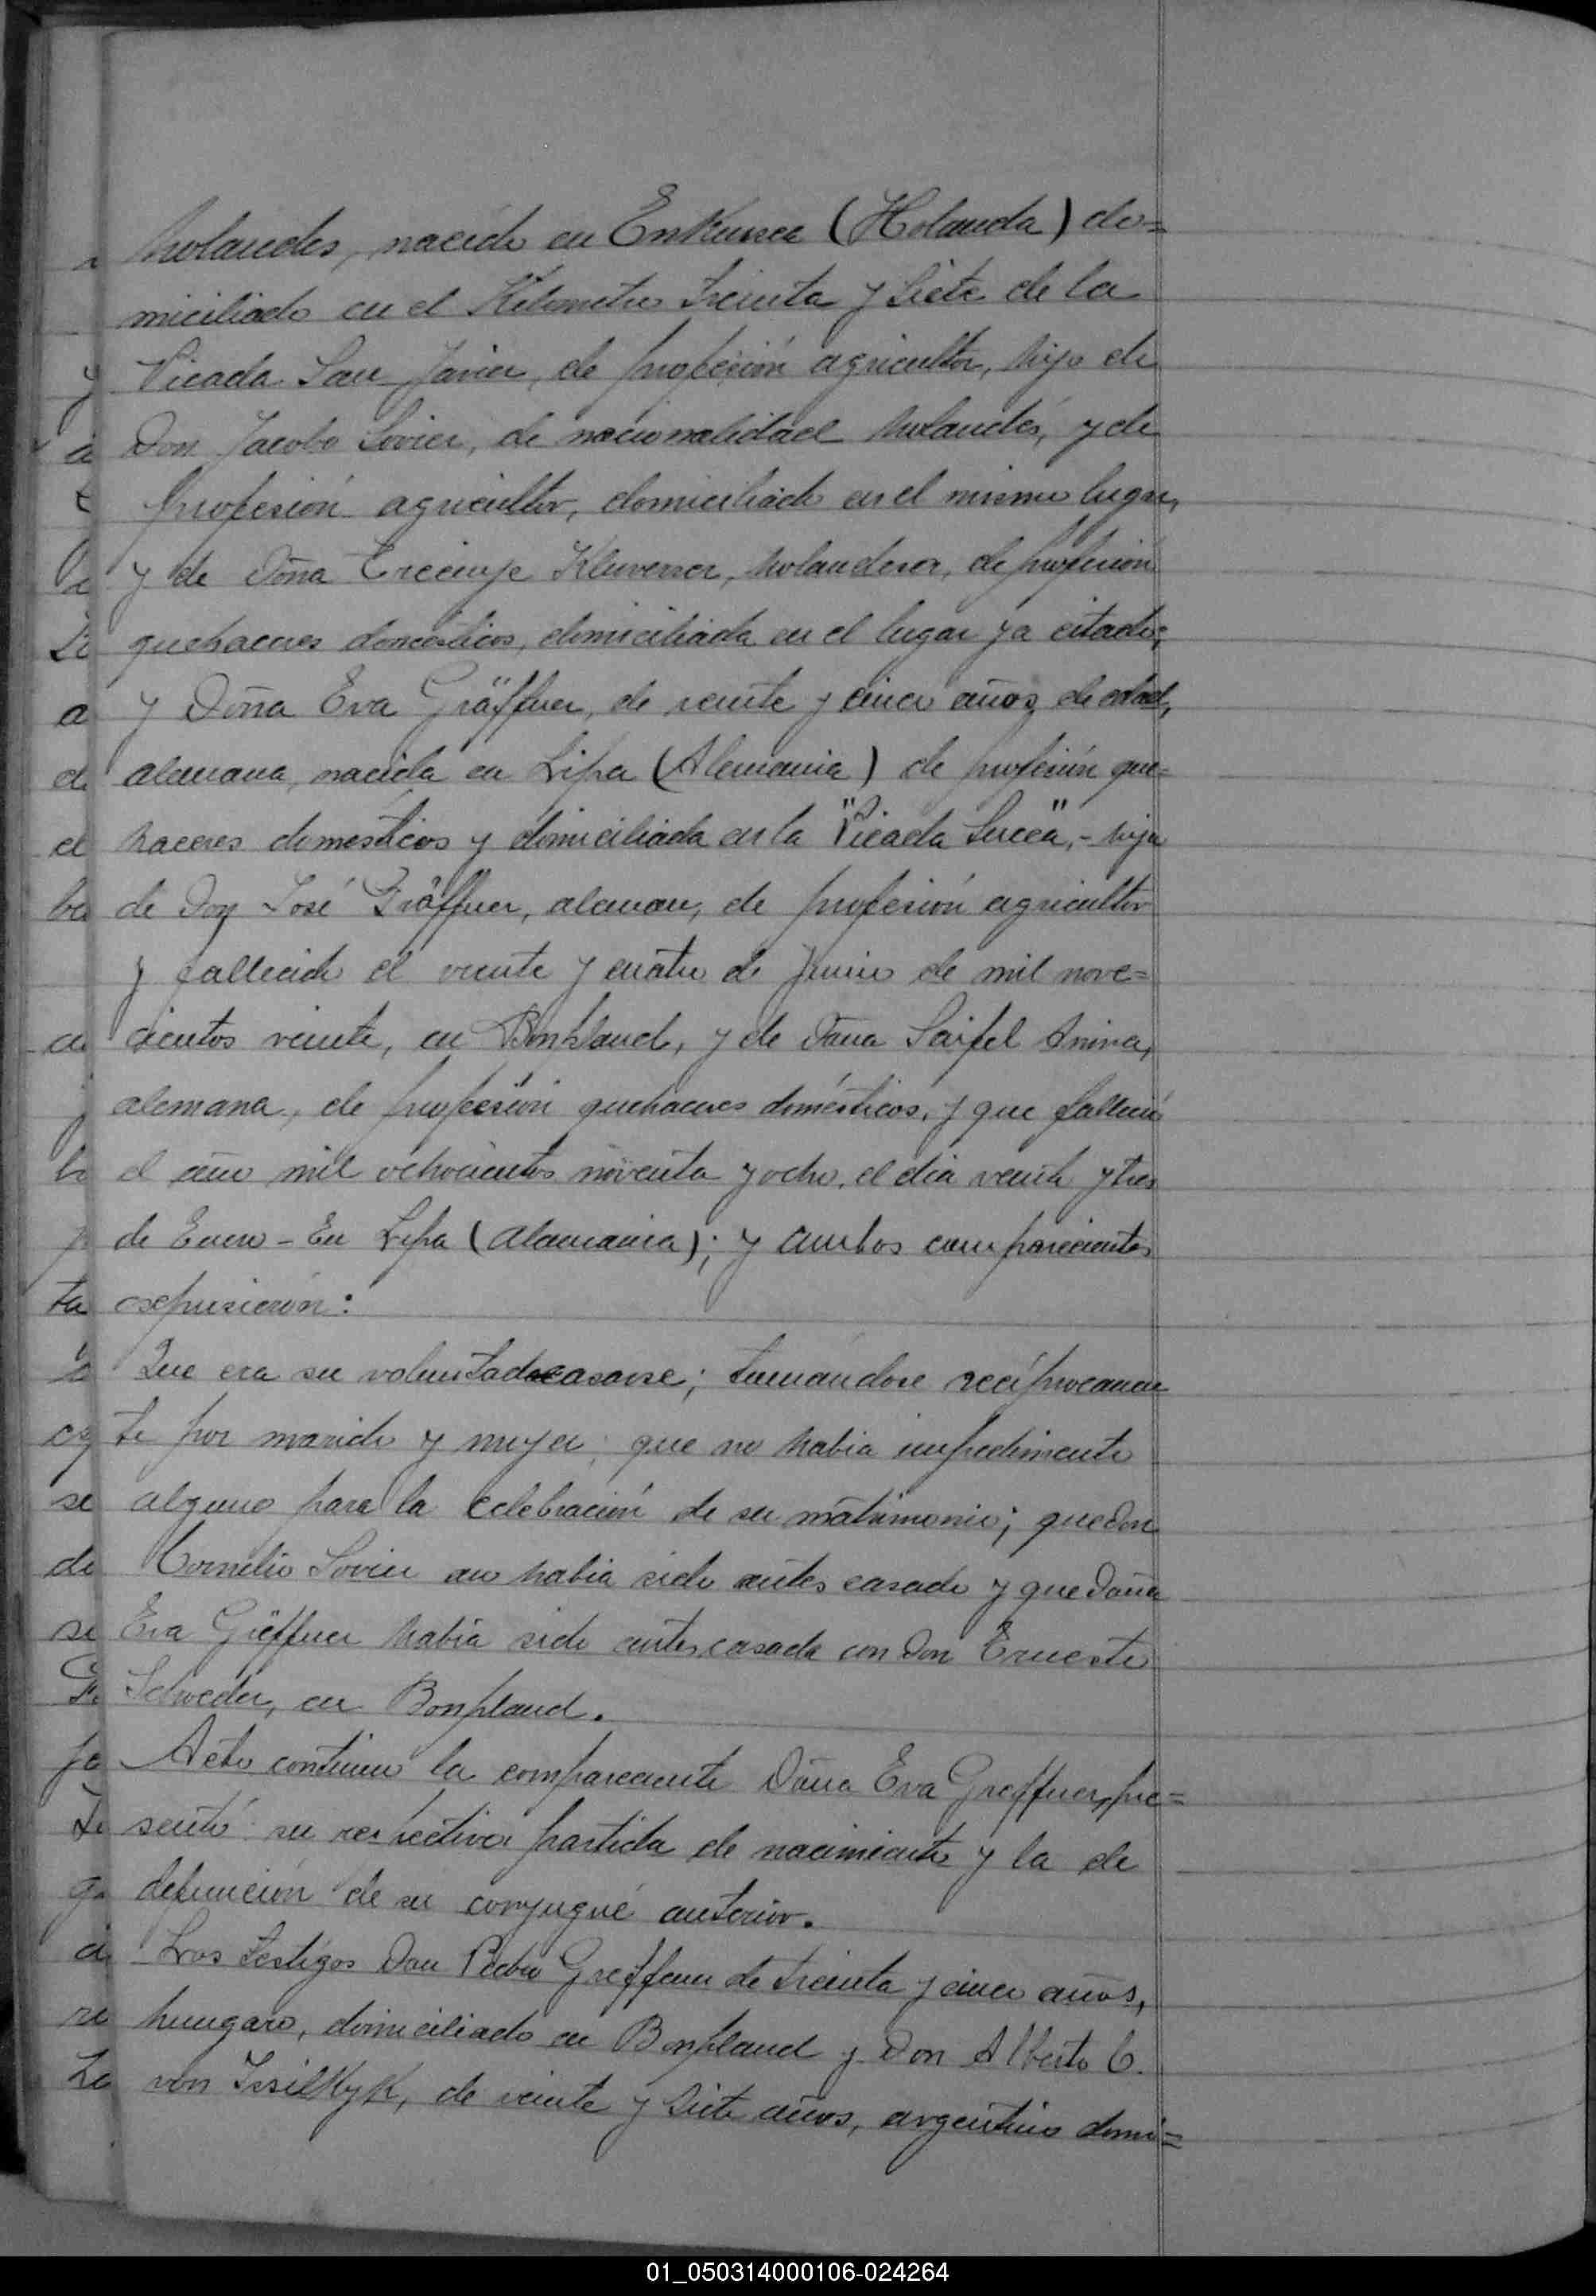 holandes, nacido en Enkuisea (Holanda) do=
miciliado en el Kilometro treinta y Siete de la
Picada San Javier, de profesión agricultor, hijo de
Don Jacobo Sovier, de nacionalidad holandés, y de
profesión agricultor, domiciliado en el mismo lugar,
y de Doña Treeinje Kluvenser, holandesa, de profesion
quehaceres domésticos, domiciliada en el lugar ya citado;
y Doña Eva Gräffner, de veinte y cinco años de edad,
alemana, nacida en Lipa (Alemania) de profesión que=
haceres domesticos y domiciliada en la "Picada Sueca",- hija
de Don José Gräffner, aleman, de profesión agricultor
y fallecido el veinte y cuatro de Junio de mil nove=
cientos veinte, en Bonpland, y de Doña Saifel Anna,
alemana, de profesión quehaceres domésticos, y que falleció
el año mil ochocientos noventa y ocho, el día veinte y tres
de Enero - En Lipa (Alemania); y ambos comparecientes
expusieron:
Que era su voluntad casarse; tomandose recíprocamen
te por marido y mujer; que no habia impedimento
alguno para la celebración de su matrimonio; que Don
Cornelio Sovier no habia sido antes casado y que Doña
Eva Gräffner habia sido antes casada con Don Ernesto
Schweder, en Bonpland.
Acto continuo la compareciente Doña Eva Greffner, pre=
sentó su respectiva partida de nacimiento y la de
defunción de su conyugué anterior.
Los testigos Don Pedro Greffner de treinta y cinco años,
hungaro, domiciliado en Bonpland y Don Alberto C.
von Issilkyk, de veinte y siete años, argentino domi=
01_050314000106-024264